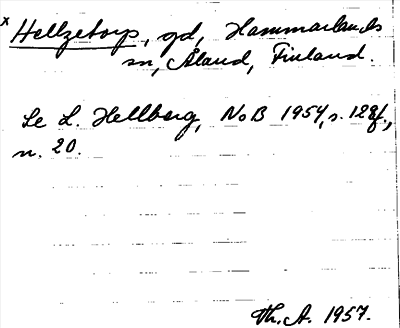 x Hellzetorp, gd, Hammarlands
sn, Åland, Finland.
Se L. Hellberg, NoB 1954, s. 129f.,
n. 20.
Th. A. 1957.